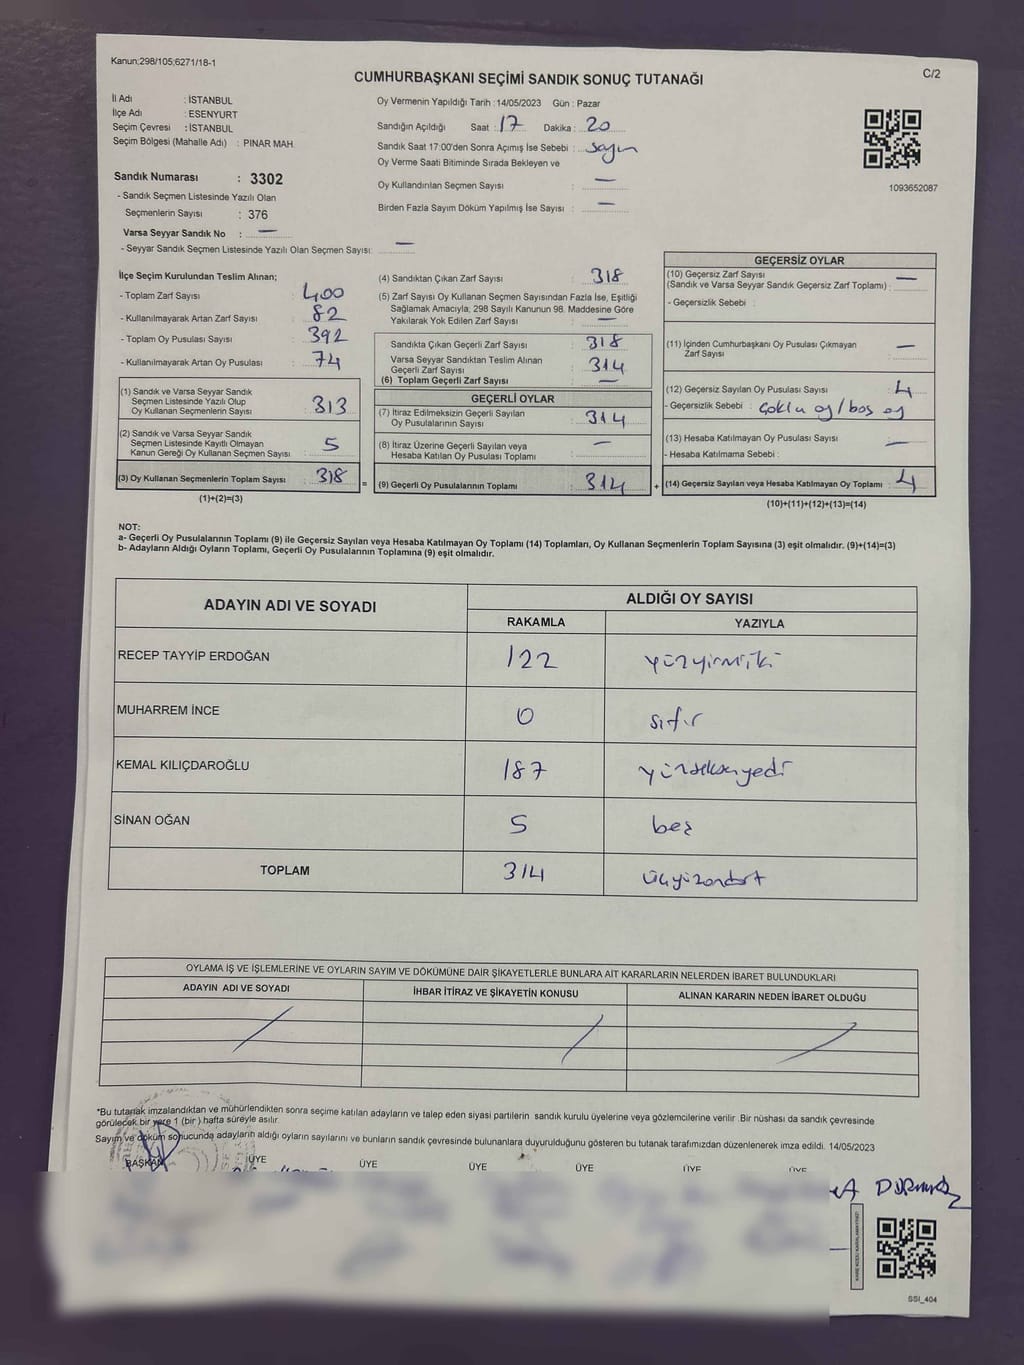 Kanun;298/105;6271/18-1
C/2
CUMHURBAŞKANI SEÇİMİ SANDIK SONUÇ TUTANAĞI
İl Adı : İSTANBUL
İlçe Adı : ESENYURT
Seçim Çevresi : İSTANBUL
Seçim Bölgesi (Mahalle Adı) : PINAR MAH.
Sandık Numarası : 3302
- Sandık Seçmen Listesinde Yazılı Olan
Seçmenlerin Sayısı : 376
Varsa Seyyar Sandık No : —
- Seyyar Sandık Seçmen Listesinde Yazılı Olan Seçmen Sayısı: —
Oy Vermenin Yapıldığı Tarih : 14/05/2023 Gün : Pazar
Sandığın Açıldığı Saat : 17 Dakika : 20
Sandık Saat 17:00'den Sonra Açımış İse Sebebi : sayım
Oy Verme Saati Bitiminde Sırada Bekleyen ve
Oy Kullandırılan Seçmen Sayısı : —
Birden Fazla Sayım Döküm Yapılmış İse Sayısı : —
1093652087
İlçe Seçim Kurulundan Teslim Alınan;
- Toplam Zarf Sayısı : 400
- Kullanılmayarak Artan Zarf Sayısı : 82
- Toplam Oy Pusulası Sayısı : 392
- Kullanılmayarak Artan Oy Pusulası : 74
(1) Sandık ve Varsa Seyyar Sandık
Seçmen Listesinde Yazılı Olup
Oy Kullanan Seçmenlerin Sayısı : 313
(2) Sandık ve Varsa Seyyar Sandık
Seçmen Listesinde Kayıtlı Olmayan
Kanun Gereği Oy Kullanan Seçmen Sayısı : 5
(3) Oy Kullanan Seçmenlerin Toplam Sayısı : 318
(1)+(2)=(3)
=
(4) Sandıktan Çıkan Zarf Sayısı : 318
(5) Zarf Sayısı Oy Kullanan Seçmen Sayısından Fazla İse, Eşitliği
Sağlamak Amacıyla; 298 Sayılı Kanunun 98. Maddesine Göre
Yakılarak Yok Edilen Zarf Sayısı : —
Sandıkta Çıkan Geçerli Zarf Sayısı : 318
Varsa Seyyar Sandıktan Teslim Alınan
Geçerli Zarf Sayısı : 314
(6) Toplam Geçerli Zarf Sayısı : —
GEÇERLİ OYLAR
(7) İtiraz Edilmeksizin Geçerli Sayılan
Oy Pusulalarının Sayısı : 314
(8) İtiraz Üzerine Geçerli Sayılan veya
Hesaba Katılan Oy Pusulası Toplamı : —
(9) Geçerli Oy Pusulalarının Toplamı : 314
+
GEÇERSİZ OYLAR
(10) Geçersiz Zarf Sayısı
(Sandık ve Varsa Seyyar Sandık Geçersiz Zarf Toplamı) : —
- Geçersizlik Sebebi :
(11) İçinden Cumhurbaşkanı Oy Pusulası Çıkmayan
Zarf Sayısı : —
(12) Geçersiz Sayılan Oy Pusulası Sayısı : 4
- Geçersizlik Sebebi : Çoklu oy/boş oy
(13) Hesaba Katılmayan Oy Pusulası Sayısı : —
- Hesaba Katılmama Sebebi :
(14) Geçersiz Sayılan veya Hesaba Katılmayan Oy Toplamı : 4
(10)+(11)+(12)+(13)=(14)
NOT:
a- Geçerli Oy Pusulalarının Toplamı (9) ile Geçersiz Sayılan veya Hesaba Katılmayan Oy Toplamı (14) Toplamları, Oy Kullanan Seçmenlerin Toplam Sayısına (3) eşit olmalıdır. (9)+(14)=(3)
b- Adayların Aldığı Oyların Toplamı, Geçerli Oy Pusulalarının Toplamına (9) eşit olmalıdır.
ADAYIN ADI VE SOYADI
ALDIĞI OY SAYISI
RAKAMLA YAZIYLA
RECEP TAYYİP ERDOĞAN 122 yüzyirmiiki
MUHARREM İNCE 0 sıfır
KEMAL KILIÇDAROĞLU 187 yüzseksenyedi
SİNAN OĞAN 5 beş
TOPLAM 314 üçyüzondört
OYLAMA İŞ VE İŞLEMLERİNE VE OYLARIN SAYIM VE DÖKÜMÜNE DAİR ŞİKAYETLERLE BUNLARA AİT KARARLARIN NELERDEN İBARET BULUNDUKLARI
ADAYIN ADI VE SOYADI İHBAR İTİRAZ VE ŞİKAYETİN KONUSU ALINAN KARARIN NEDEN İBARET OLDUĞU
*Bu tutanak imzalandıktan ve mühürlendikten sonra seçime katılan adayların ve talep eden siyasi partilerin sandık kurulu üyelerine veya gözlemcilerine verilir. Bir nüshası da sandık çevresinde
görülecek bir yere 1 (bir) hafta süreyle asılır.
Sayım ve döküm sonucunda adayların aldığı oyların sayılarını ve bunların sandık çevresinde bulunanlara duyurulduğunu gösteren bu tutanak tarafımızdan düzenlenerek imza edildi. 14/05/2023
BAŞKAN ÜYE ÜYE ÜYE ÜYE ÜYE ÜYE
SSI_404